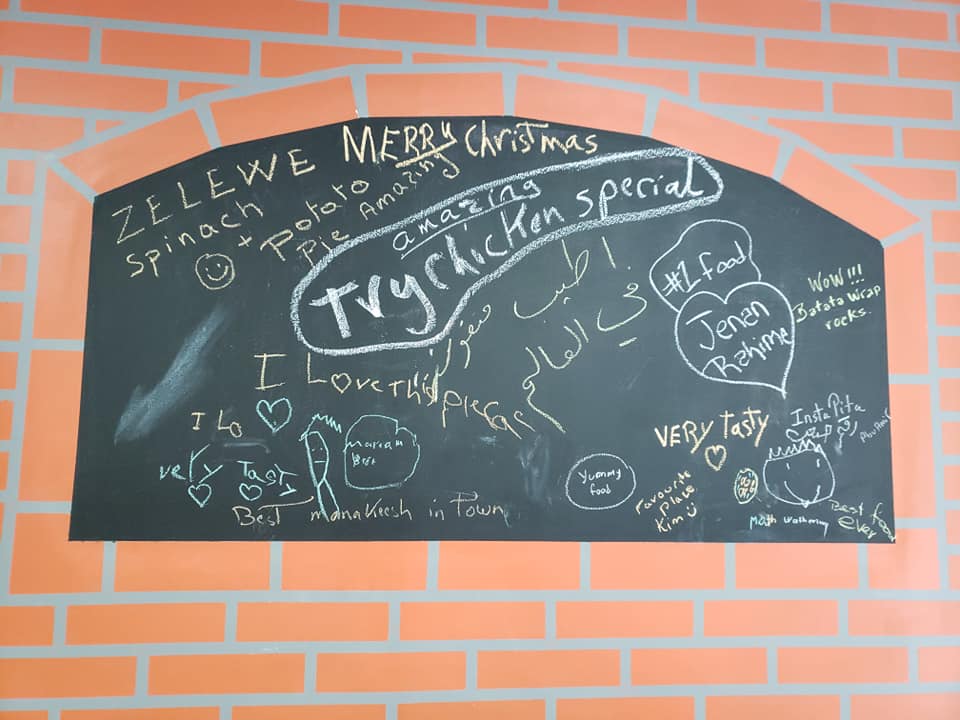 MERRY Christmas
ZELEWE
spinach
+ Potato
Pie
Amazing
amazing
Try chicken special
اطيب
في العالم
#1 food
Jenan
Rahime
WOW!!!
Batata Wrap
rocks.
I Love this place
I Lo
very Tasty
Mariam
Best
Best manakeesh in Town
Yummy
food
VERY Tasty
Favourite
place
Kim
Insta Pita
Best food
ever